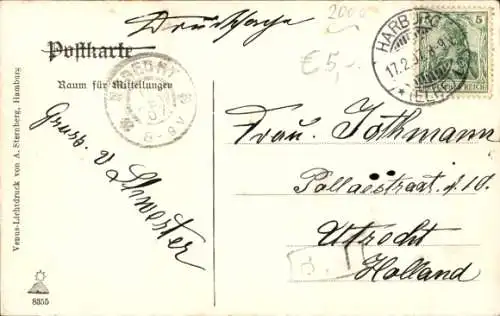 Drucksache
2000
Postkarte
€5,-
Raum für Mitteilungen
HARBURG
17.2.
(ELBE)
5
UTRECHT
8-9V
Gruss. v
Schwester
Frau. Jothmann
Pallaestraat. 10.
Utrocht
Holland
Venus-Lichtdruck von A. Sternberg, Hamburg
8355